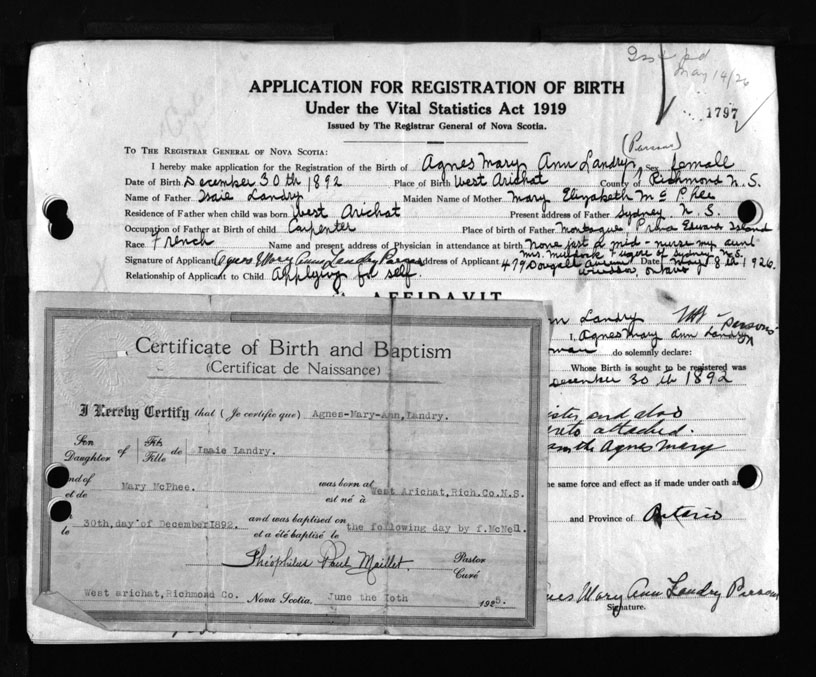 pd
May 14/26
APPLICATION FOR REGISTRATION OF BIRTH
Under the Vital Statistics Act 1919
1797
Issued by The Registrar General of Nova Scotia.
(Parsons)
TO THE REGISTRAR GENERAL OF NOVA SCOTIA:
I hereby make application for the Registration of the Birth of Agnes Mary Ann Landry, Sex Female
Date of Birth December 30th 1892 Place of Birth West Arichat County of Richmond N.S.
Name of Father Isaie Landry Maiden Name of Mother Mary Elizabeth McPhee
Residence of Father when child was born West Arichat Present address of Father Sydney N.S.
Occupation of Father at Birth of child Carpenter Place of birth of Father Montague, Prince Edward Island
Race French Name and present address of Physician in attendance at birth None just a mid-nurse my aunt
Mrs. Murdock of Sydney N.S.
Signature of Applicant Agnes Mary Ann Landry Parsons Address of Applicant 479 Dougall Avenue Date May 8th 1926.
Windsor, Ontario
Relationship of Applicant to Child Applying for self.
AFFIDAVIT
nn Landry Parsons
I, Agnes Mary Ann Landry
do solemnly declare:
Whose Birth is sought to be registered was
December 30th 1892
ister and also
reto attached.
am the Agnes Mary
he same force and effect as if made under oath an
and Province of Ontario
nes Mary Ann Landry Parsons
Signature.
Certificate of Birth and Baptism
(Certificat de Naissance)
I Hereby Certify that (Je certifie que) Agnes-Mary-Ann, Landry.
Son Fils
Daughter of Fille de Isaie Landry.
and of
et de Mary McPhee. was born at
est né à West Arichat, Rich.Co.N.S.
le 30th,day of December1892. and was baptised on
et a été baptisé le the following day by f.McNeil.
Théophilus Paul Maillet Pastor
Curé
West arichat,Richmond Co. Nova Scotia, June the 10th 1925.